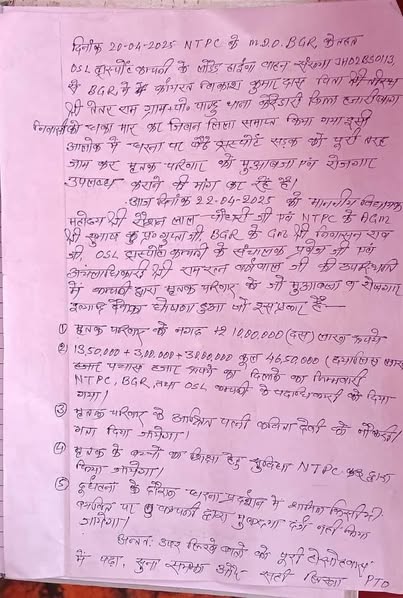 दिनांक 20-04-2025 NTPC के M.D.O. BGR, के तहत
OSL ट्रांसपोर्ट कम्पनी के लोडेड हाईवा वाहन संख्या JH02BS0113,
से BGR में कार्यरत विकाश कुमार दास पिता श्री
श्री चेतर राम ग्राम+पो. पाण्डु थाना केरेडारी जिला हजारीबाग
निवासी को धक्का मार कर जिवन लिला समाप्त किया गया इसी
आलोक में धरना पर बैठे ट्रांसपोर्ट सड़क को पूरी तरह
जाम कर मृतक परिवार को मुआवजा एवं रोजगार
उपलब्ध कराने की मांग कर रहे हैं।
आज दिनांक 22-04-2025 को माननीय विधायक
महोदय श्री रौशन लाल चौधरी जी एवं NTPC के AGM
श्री सुभाष कु० गुप्ता जी BGR के Gm श्री श्रीनिवासन राव
जी, OSL ट्रांसपोर्ट कम्पनी के संचालक जी एवं
अंचलाधिकारी श्री रामरतन जी की उपस्थिति
में कम्पनी द्वारा मृतक परिवार को जो मुआवजा व रोजगार
घोषणा हुआ जो इस प्रकार है—
① मृतक परिवार को नगद 10,00,000 (दस) लाख रूपये
2) 13,50,000 + 3,00,000 + 30,00,000 कुल 46,50,000 (छियालिस लाख
पचास हजार रूपये का दिलाने का जिम्मेवारी
NTPC, BGR, तथा OSL कम्पनी के पदाधिकारी को दिया
गया।
③ मृतक परिवार के आश्रित पत्नी देवी को नौकरी
दिया जायेगा।
④ मृतक के बच्चों का शिक्षा हेतु सुविधा NTPC द्वारा
किया जायेगा।
⑤ दुर्घटना के दौरान धरना प्रदर्शन में शामिल किसी भी
व्यक्ति पर कम्पनी द्वारा मुकदमा दर्ज नहीं किया
जायेगा।
अन्ततः उपर लिखे बातों को पूरी
में पढ़ा, सुना समझा और सही लिखा PTO